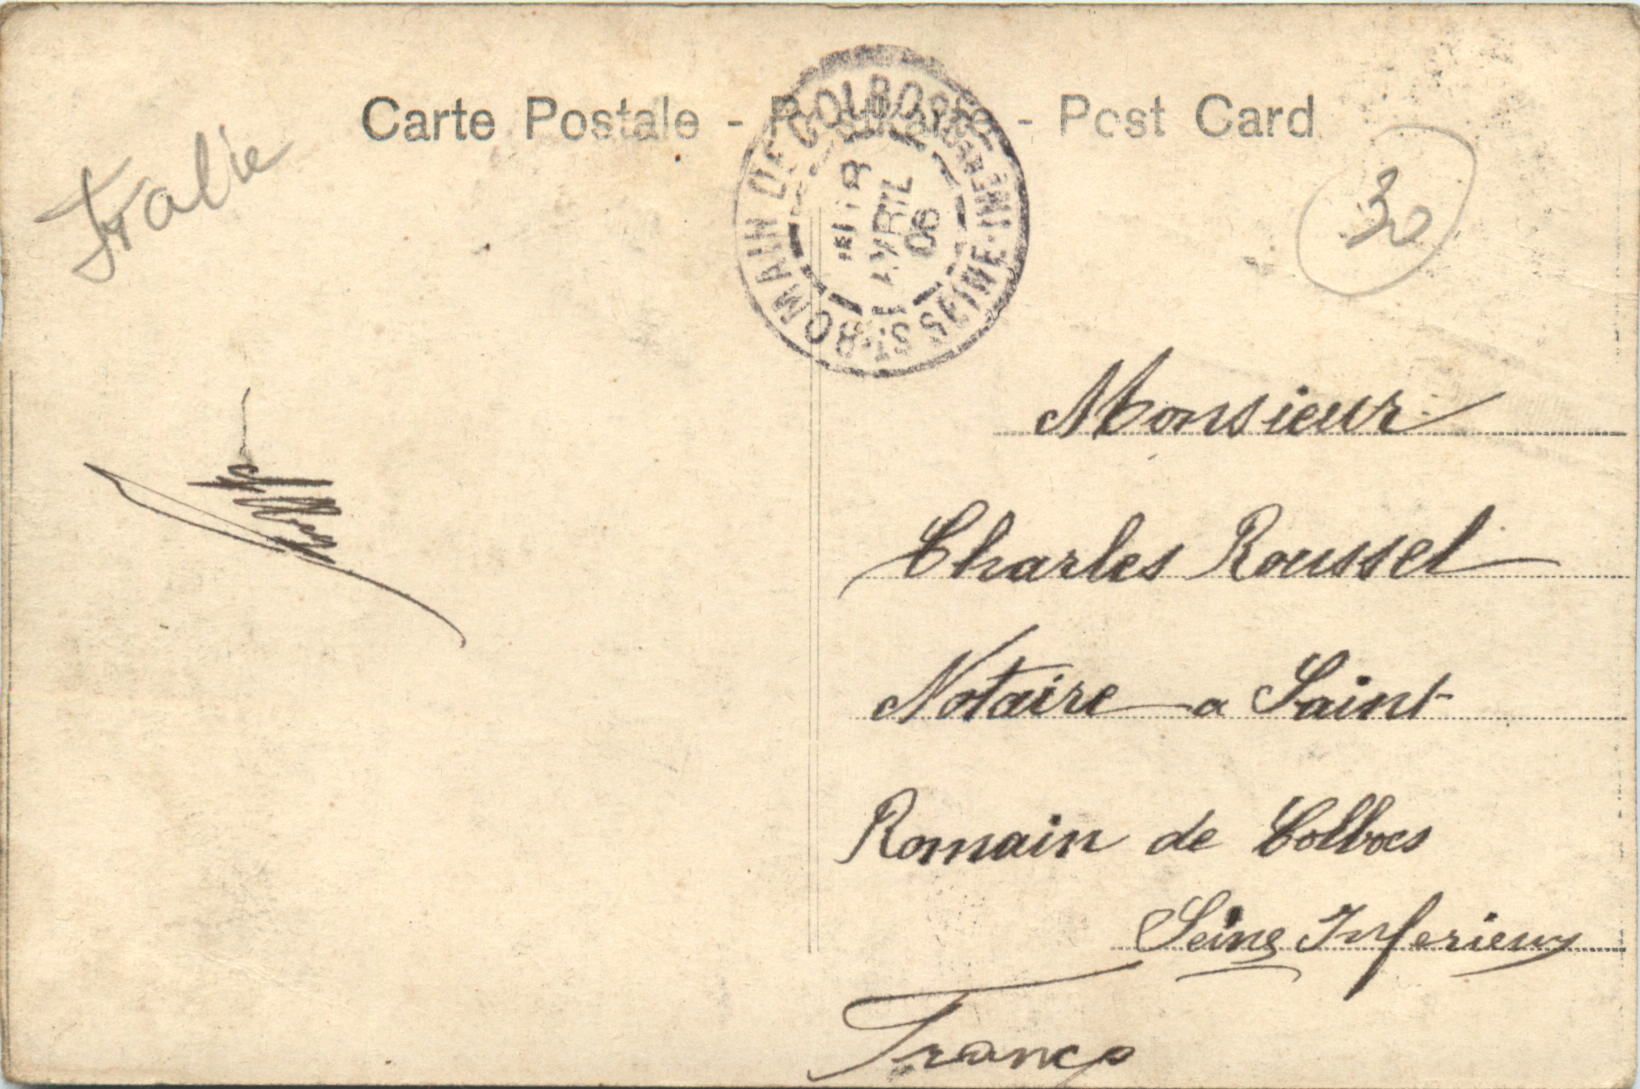 Carte Postale - Postkarte - Post Card
Italie
30
ST ROMAIN DE COLBOSC SEINE-INFERIEURE
18
AVRIL
06
Monsieur
Charles Roussel
Notaire a Saint
Romain de Colbocs
Seine Inferieur
France